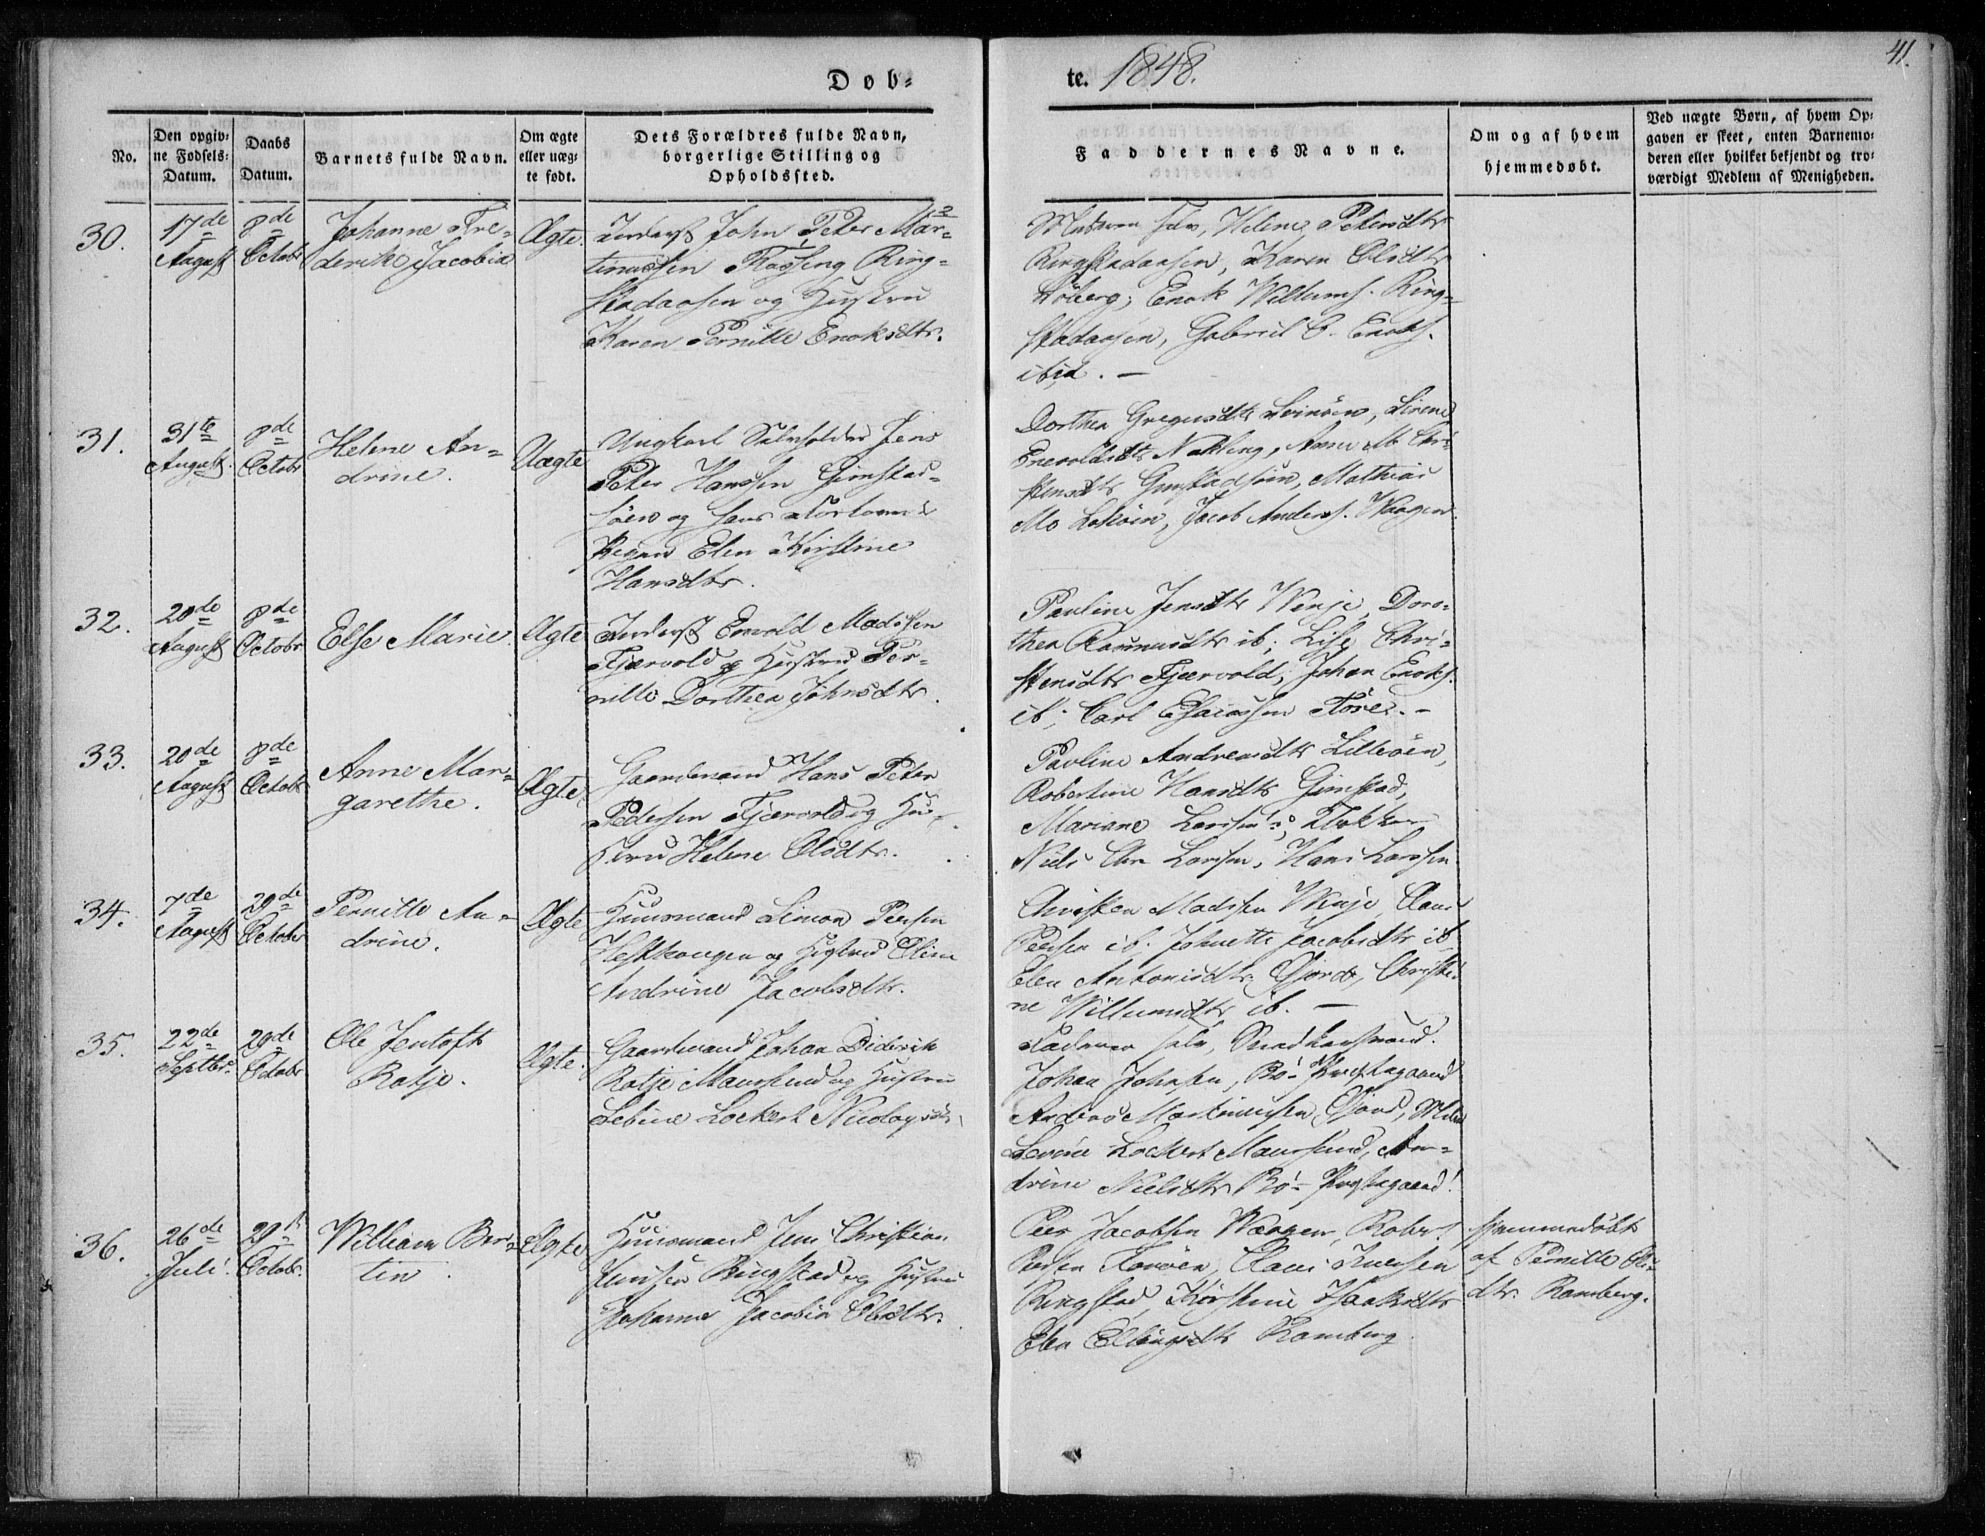 41.
Døb-
te. 1848.
No.
Den opgiv-
ne Fødsels-
Datum.
Daabs
Datum.
Barnets fulde Navn.
Om ægte
eller uæg-
te født.
Dets Forældres fulde Navn,
borgerlige Stilling og
Opholdssted.
Faddernes Navne.
Om og af hvem
hjemmedøbt.
Ved uægte Børn, af hvem Op-
gaven er skeet, enten Barnemo-
deren eller hvilket bekjendt og tro-
værdigt Medlem af Menigheden.
30.
17de
August
8de
Octobr
Johanne Fre-
derike Jacobia
Ægte
Inderst John Peter Mar-
tinussen Ring-
stadaasen og Hustru
Karen Pernille Enoksdtr.
Moderen selv, Helene Petersdtr
Ringstadaasen, Karen Olsdtr
Enok Willums. Ring-
stadaasen, Gabriel E. Enoks.
ibid. —
31.
31te
August.
8de
Octobr
Helene An-
drine.
Uægte
Ungkarl Jens
Peter Hanssen Gimstad-
søen og hans
Elen Kirstine
Hansdtr.
Dorthea Gregusdtr
Enevoldsdtr Anne M. Chri-
stensdtr Mathias
Mo Jacob Anders. Vaagen
32.
20de
August
8de
Octobr
Else Marie
Ægte
Inderst Enevold Madssen
Fjærvold og Hustru Per-
nille Dorthea Johnsdtr.
Pauline Jensdtr Vinje, Doro-
thea Rasmusdtr ib; Chri-
stensdtr Fjærvold, Johan Enoks.
ib; Carl Esaiassen
33.
20de
August
8de
Octobr
Anne Mar-
garethe.
Ægte
Gaardmand Hans Peter
Pedersen Fjærvold og Hu-
stru Helene Olsdtr.
Pauline Andreasdtr
Robertine Hansdtr Gimstad,
Mariane
Niels Chr Larsen, Hans Larssen
34.
7de
August
29de
October
Pernille An-
drine.
Ægte
Huusmand Simon Peersen
og Hustru Oline
Andrine Jacobsdtr.
Christen Madsen Vinje
Peersen ib. Johnette Jacobsdtr ib
Elen Antonisdtr Christi-
ne Willumsdtr ib. —
35.
22de
Septbr
29de
Octobr
Ole Jentoft
Ratje.
Ægte.
Gaardmand Johan Diderik
Ratje Maursund og Hustru
Lockert Nicolaysdtr
Faderen selv,
Johan Johnsen, Bø- Præstegaard
Anders Martinussen
Lockert Maursund, An-
drine Nielsdtr Bø- Præstegaard!
36.
26de
Juli.
29de
Octobr.
William Ber-
tin.
Ægte
Huusmand Jens Christian
Jenssen Ringstad og Hustru
Johanna Jacobia Olsdtr.
Peer Jacobsen
Ringstad, Kirstine
Elen Ellingsdtr Ramberg
Hjemmedøbt
af Pernille Ols-
dtr. Ramberg.